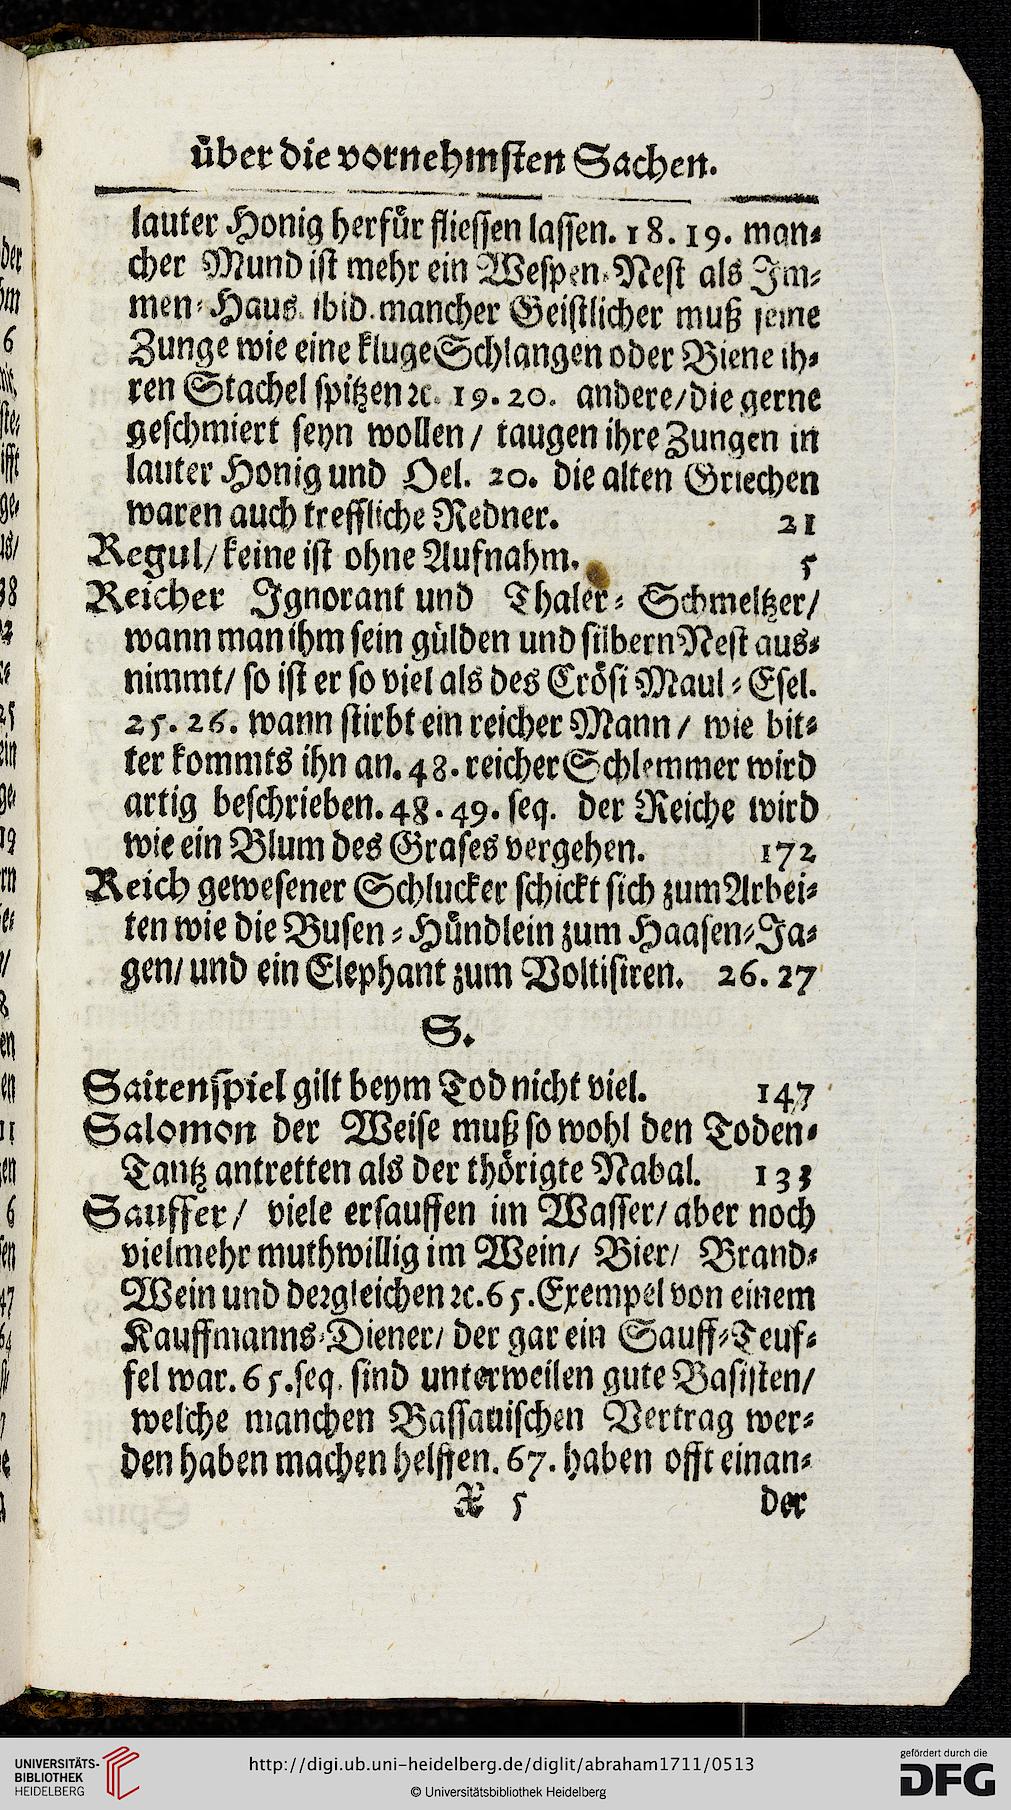 über die vornehmsten Sachen.
lauter Honig herfür fliessen lassen. 18. 19. man-
cher Mund ist mehr ein Wespen-Nest als Im-
men-Haus. ibid. mancher Geistlicher muß seine
Zunge wie eine kluge Schlangen oder Biene ih-
ren Stachel spitzen ꝛc. 19. 20. andere/ die gerne
geschmiert seyn wollen/ taugen ihre Zungen in
lauter Honig und Oel. 20. die alten Griechen
waren auch treffliche Redner. 21
Regul/ keine ist ohne Aufnahm. 5
Reicher Ignorant und Thaler-Schmeltzer/
wann man ihm sein gülden und silbern Nest aus-
nimmt/ so ist er so viel als des Crösi Maul-Esel.
25. 26. wann stirbt ein reicher Mann/ wie bit-
ter kommts ihn an. 48. reicher Schlemmer wird
artig beschrieben. 48. 49. seq. der Reiche wird
wie ein Blum des Grases vergehen. 172
Reich gewesener Schlucker schickt sich zum Arbei-
ten wie die Busen-Hündlein zum Haasen-Ja-
gen/ und ein Elephant zum Voltisiren. 26. 27
S.
Saitenspiel gilt beym Tod nicht viel. 147
Salomon der Weise muß so wohl den Toden-
Tantz antretten als der thörigte Nabal. 133
Sauffer/ viele ersauffen im Wasser/ aber noch
vielmehr muthwillig im Wein/ Bier/ Brand-
Wein und dergleichen ꝛc. 65. Exempel von einem
Kauffmanns-Diener/ der gar ein Sauff-Teuf-
fel war. 65. seq. sind unterweilen gute Basisten/
welche manchen Bassauischen Vertrag wer-
den haben machen helffen. 67. haben offt einan-
X 5 der
UNIVERSITÄTS-
BIBLIOTHEK
HEIDELBERG
http://digi.ub.uni-heidelberg.de/diglit/abraham1711/0513
© Universitätsbibliothek Heidelberg
gefördert durch die
DFG